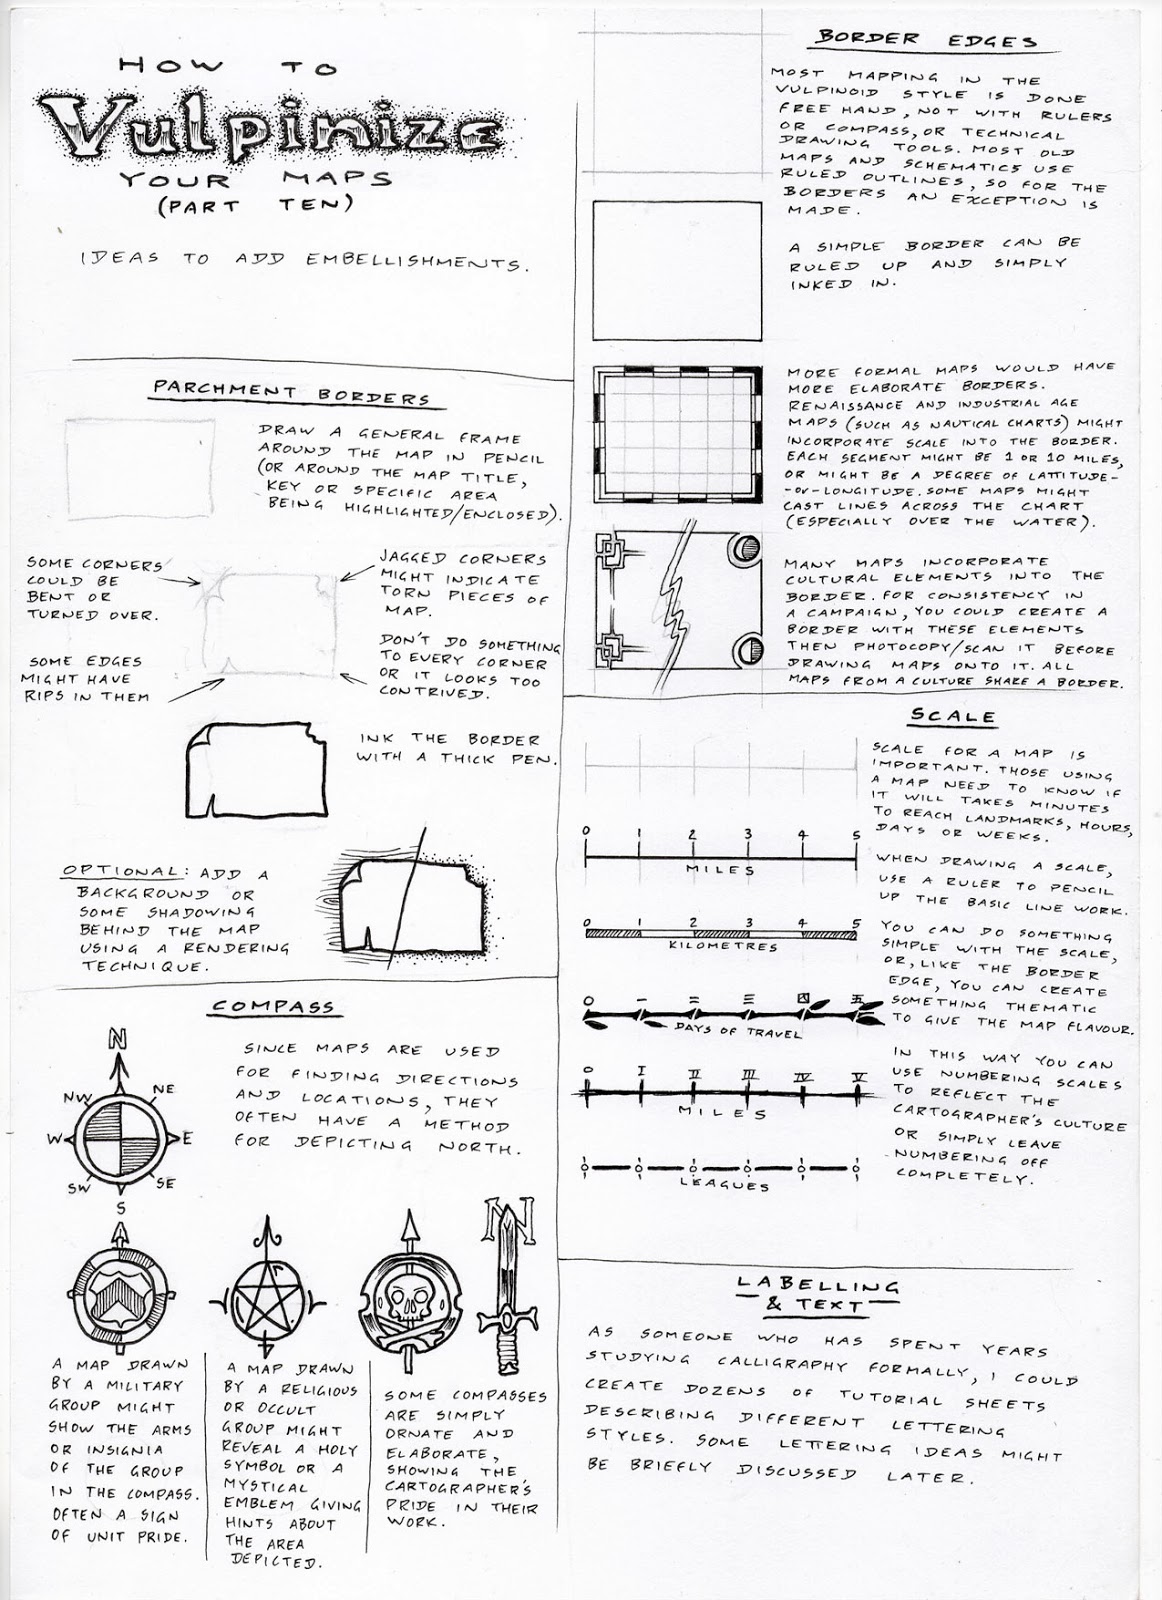 HOW TO
Vulpinize
YOUR MAPS
(PART TEN)
IDEAS TO ADD EMBELLISHMENTS.
PARCHMENT BORDERS
DRAW A GENERAL FRAME
AROUND THE MAP IN PENCIL
(OR AROUND THE MAP TITLE,
KEY OR SPECIFIC AREA
BEING HIGHLIGHTED/ENCLOSED).
SOME CORNERS
COULD BE
BENT OR
TURNED OVER.
JAGGED CORNERS
MIGHT INDICATE
TORN PIECES OF
MAP.
SOME EDGES
MIGHT HAVE
RIPS IN THEM
DON'T DO SOMETHING
TO EVERY CORNER
OR IT LOOKS TOO
CONTRIVED.
INK THE BORDER
WITH A THICK PEN.
OPTIONAL: ADD A
BACKGROUND OR
SOME SHADOWING
BEHIND THE MAP
USING A RENDERING
TECHNIQUE.
COMPASS
N
NW NE
W E
SW SE
S
SINCE MAPS ARE USED
FOR FINDING DIRECTIONS
AND LOCATIONS, THEY
OFTEN HAVE A METHOD
FOR DEPICTING NORTH.
N
A MAP DRAWN
BY A MILITARY
GROUP MIGHT
SHOW THE ARMS
OR INSIGNIA
OF THE GROUP
IN THE COMPASS.
OFTEN A SIGN
OF UNIT PRIDE.
A MAP DRAWN
BY A RELIGIOUS
OR OCCULT
GROUP MIGHT
REVEAL A HOLY
SYMBOL OR A
MYSTICAL
EMBLEM GIVING
HINTS ABOUT
THE AREA
DEPICTED.
SOME COMPASSES
ARE SIMPLY
ORNATE AND
ELABORATE,
SHOWING THE
CARTOGRAPHER'S
PRIDE IN THEIR
WORK.
BORDER EDGES
MOST MAPPING IN THE
VULPINOID STYLE IS DONE
FREE HAND, NOT WITH RULERS
OR COMPASS, OR TECHNICAL
DRAWING TOOLS. MOST OLD
MAPS AND SCHEMATICS USE
RULED OUTLINES, SO FOR THE
BORDERS AN EXCEPTION IS
MADE.
A SIMPLE BORDER CAN BE
RULED UP AND SIMPLY
INKED IN.
MORE FORMAL MAPS WOULD HAVE
MORE ELABORATE BORDERS.
RENAISSANCE AND INDUSTRIAL AGE
MAPS (SUCH AS NAUTICAL CHARTS) MIGHT
INCORPORATE SCALE INTO THE BORDER.
EACH SEGMENT MIGHT BE 1 OR 10 MILES,
OR MIGHT BE A DEGREE OF LATTITUDE-
-OR-LONGITUDE. SOME MAPS MIGHT
CAST LINES ACROSS THE CHART
(ESPECIALLY OVER THE WATER).
MANY MAPS INCORPORATE
CULTURAL ELEMENTS INTO THE
BORDER. FOR CONSISTENCY IN
A CAMPAIGN, YOU COULD CREATE A
BORDER WITH THESE ELEMENTS
THEN PHOTOCOPY/SCAN IT BEFORE
DRAWING MAPS ONTO IT. ALL
MAPS FROM A CULTURE SHARE A BORDER.
SCALE
SCALE FOR A MAP IS
IMPORTANT. THOSE USING
A MAP NEED TO KNOW IF
IT WILL TAKES MINUTES
TO REACH LANDMARKS, HOURS,
DAYS OR WEEKS.
0 1 2 3 4 5
MILES
WHEN DRAWING A SCALE,
USE A RULER TO PENCIL
UP THE BASIC LINE WORK.
0 1 2 3 4 5
KILOMETRES
YOU CAN DO SOMETHING
SIMPLE WITH THE SCALE,
OR, LIKE THE BORDER
EDGE, YOU CAN CREATE
SOMETHING THEMATIC
TO GIVE THE MAP FLAVOUR.
0 一 二 三 四 五
DAYS OF TRAVEL
IN THIS WAY YOU CAN
USE NUMBERING SCALES
TO REFLECT THE
CARTOGRAPHER'S CULTURE
OR SIMPLY LEAVE
NUMBERING OFF
COMPLETELY.
0 I II III IV V
MILES
LEAGUES
LABELLING
& TEXT
AS SOMEONE WHO HAS SPENT YEARS
STUDYING CALLIGRAPHY FORMALLY, I COULD
CREATE DOZENS OF TUTORIAL SHEETS
DESCRIBING DIFFERENT LETTERING
STYLES. SOME LETTERING IDEAS MIGHT
BE BRIEFLY DISCUSSED LATER.